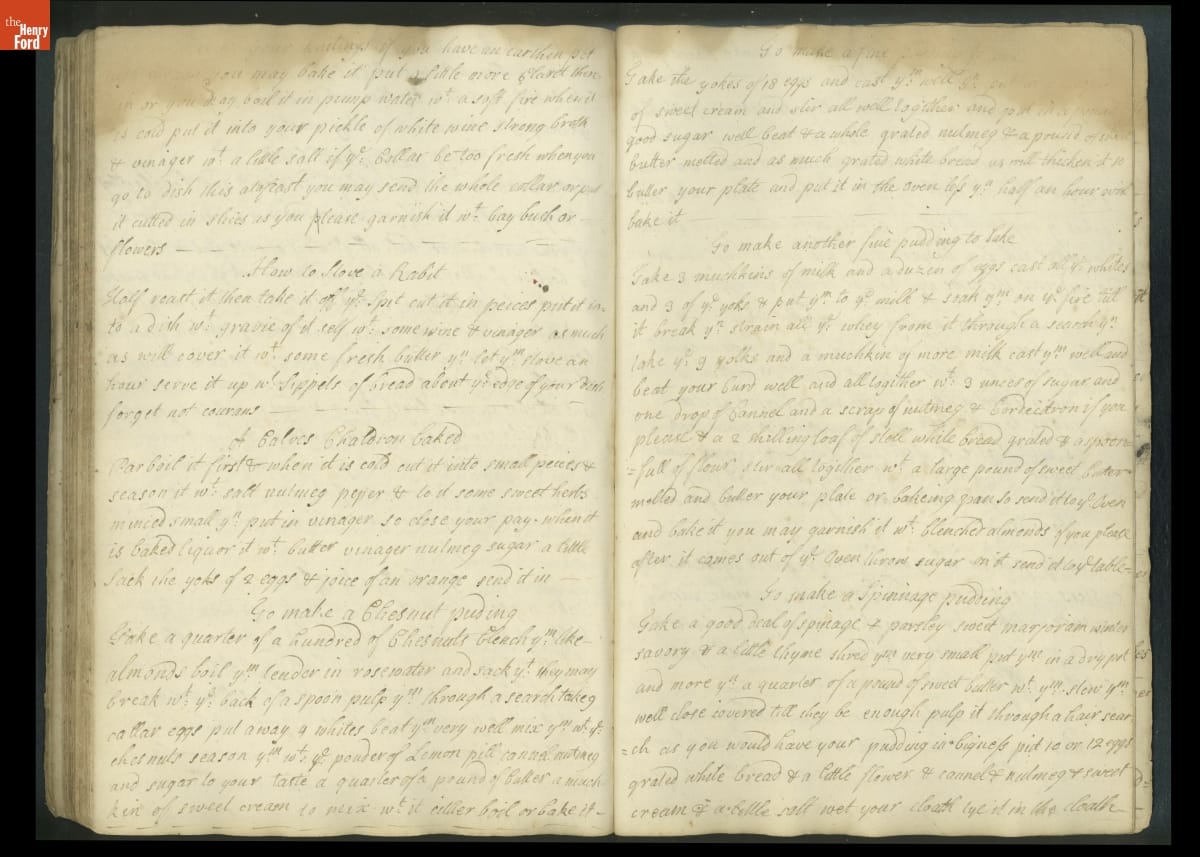 the
Henry
Ford
your if you have an earthen pot
you may bake it put a little more Claret then
in or you may boil it in pump water wt. a soft fire when it
is cold put it into your pickle of white wine strong broth
& vinager wt. a little salt if ye. Collar be too fresh when you
go to dish this you may send the whole collar or put
it cutted in slices as you please garnish it wt. bay bush or
flowers
How to Stove a Rabit
Half roast it then take it off ye. Spit cut it in peices put it in-
to a dish wt. gravie of it self wt. some wine & vinager as much
as will cover it wt. some fresh butter yn let ym stove an
hour serve it up wt. Sippels of bread about ye. edge of your dish
forget not courans
A Calves Chaldron baked
Par boil it first & when it is cold cut it into small peices &
season it wt. salt nutmeg peper & to it some sweet herbs
minced small yn. put in vinager so close your pay. when it
is baked liquor it wt. butter vinager nutmeg sugar a little
Sack the yoks of 2 eggs & joice of an orange send it in
To make a Chesnut puding
Take a quarter of a hundred of Chesnuts blench ym. like
almonds boil ym tender in rosewater and sack yt. they may
break wt. ye. back of a spoon pulp ym through a search take 9
callar eggs put away 4 whites beat ym very well mix ym wt. ye.
chesnuts season ym wt. ye pouder of Lemon pill cannel nutmeg
and sugar to your taste a quarter of a pound of butter a much-
kin of sweet cream to mix wt. it either boil or bake it
To make a fine
Take the yokes of 18 eggs and cast ym. well
of sweet cream and stir all well together and put in a
good sugar well beat & a whole grated nutmeg & a pound of
butter melted and as much grated white bread as will thicken it so
butter your plate and put it in the Oven less yn half an hour will
bake it
To make another fine pudding to bake
Take 3 muchkins of milk and a duzen of eggs cast all ye. whites
and 3 of ye. yoks & put ym to ye. milk & ym on ye. fire till
it break yn strain all ye. whey from it through a search yn.
take ye. 9 yolks and a muchkin of more milk cast ym. well and
beat your Curd well and all togither wt. 3 unces of sugar and
one drop of Cannel and a scrap of nutmeg & Cordecitron if you
please & a 2 shilling loaf of stell white bread grated & a spoon-
=full of flour stir all togither wt. a large pound of sweet butter
melted and butter your plate or bakeing pan so send it to ye. Oven
and bake it you may garnish it wt. blenched almonds if you please
after it comes out of ye. Oven throw sugar on't send it to ye. table=
To make a Spinnage pudding
Take a good deal of spinage & parsley sweet marjoram winter
savory & a little thyme shred ym very small put ym in a dry pot
and more yn a quarter of a pound of sweet butter wt. ym. stew ym.
well close covered till they be enough pulp it through a hair sear
=ch as you would have your pudding in bigness put 10 or 12 eggs
grated white bread & a little flower & cannel & nutmeg & sweet
cream & a little salt wet your cloath tye it in the cloath